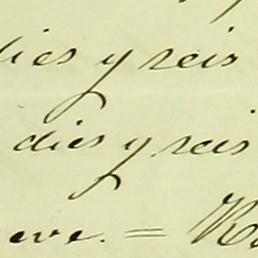 dies y seis
dies y seis
eve. = R